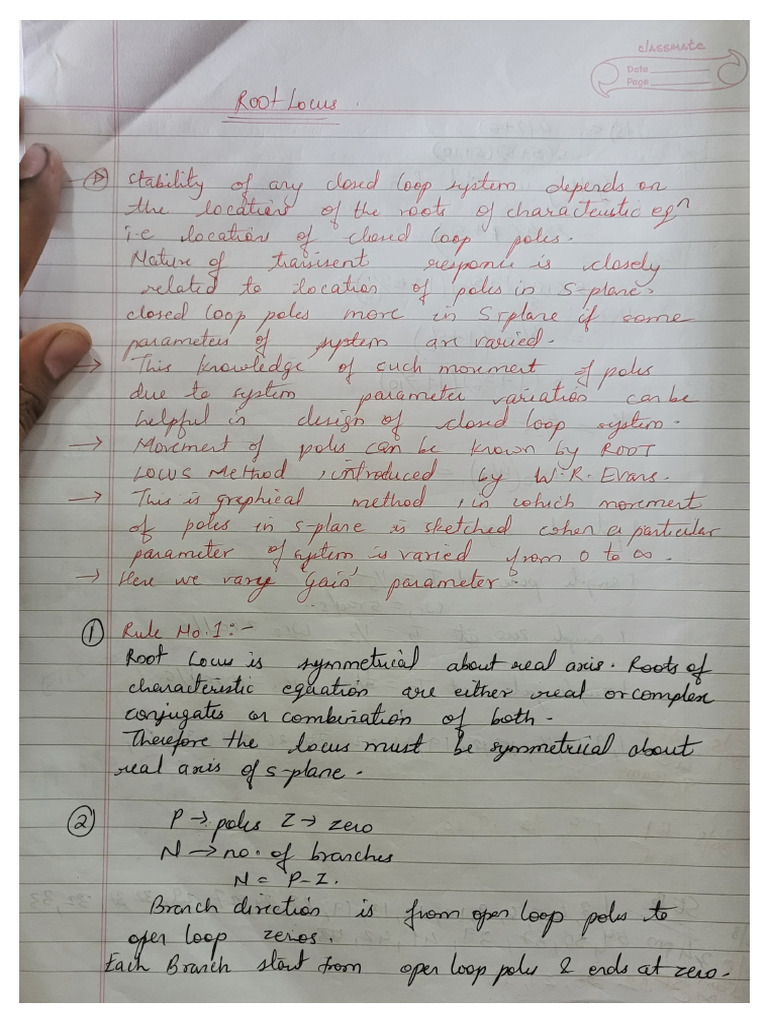 classmate
Date
Page
Root Locus.
Stability of any closed loop system depends on
the location of the roots of characteristic eqn
i.e location of closed loop poles.
Nature of transisent response is closely
related to location of poles in S-plane.
closed loop poles move in S-plane if some
parameters of system are varied.
→ This knowledge of such movement of poles
due to system parameter variation can be
helpful in design of closed loop system.
→ Movement of poles can be known by ROOT
LOCUS Method, introduced by W.R. Evans.
→ This is graphical method, in which movement
of poles in s-plane is sketched when a particular
parameter of system is varied from 0 to ∞.
→ Here we vary 'Gain' parameter.
① Rule No.1:-
Root Locus is symmetrical about real axis. Roots of
characteristic equation are either real or complex
conjugates or combination of both.
Therefore the locus must be symmetrical about
real axis of s-plane.
② P → poles Z → zero
N → no. of branches
N = P-Z.
Branch direction is from open loop poles to
open loop zeros.
Each Branch start from open loop poles & ends at zero.